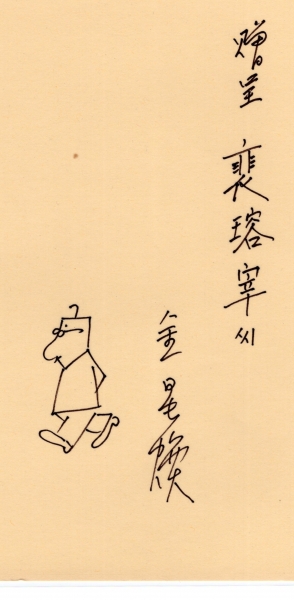 贈呈 裵瑢宰씨
金星煥